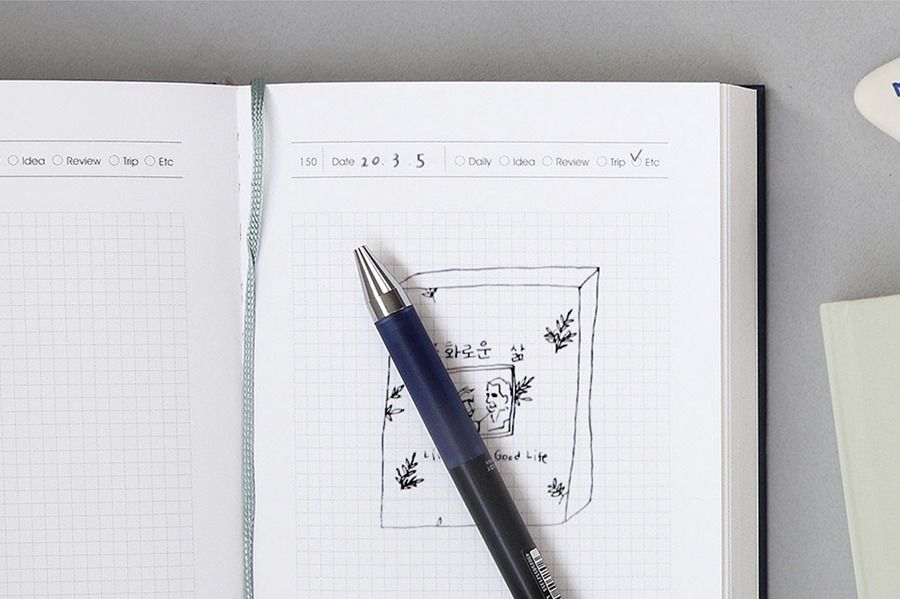 Idea Review Trip Etc
150 Date 20.3.5 Daily Idea Review Trip Etc
화로운 삶
Good Life